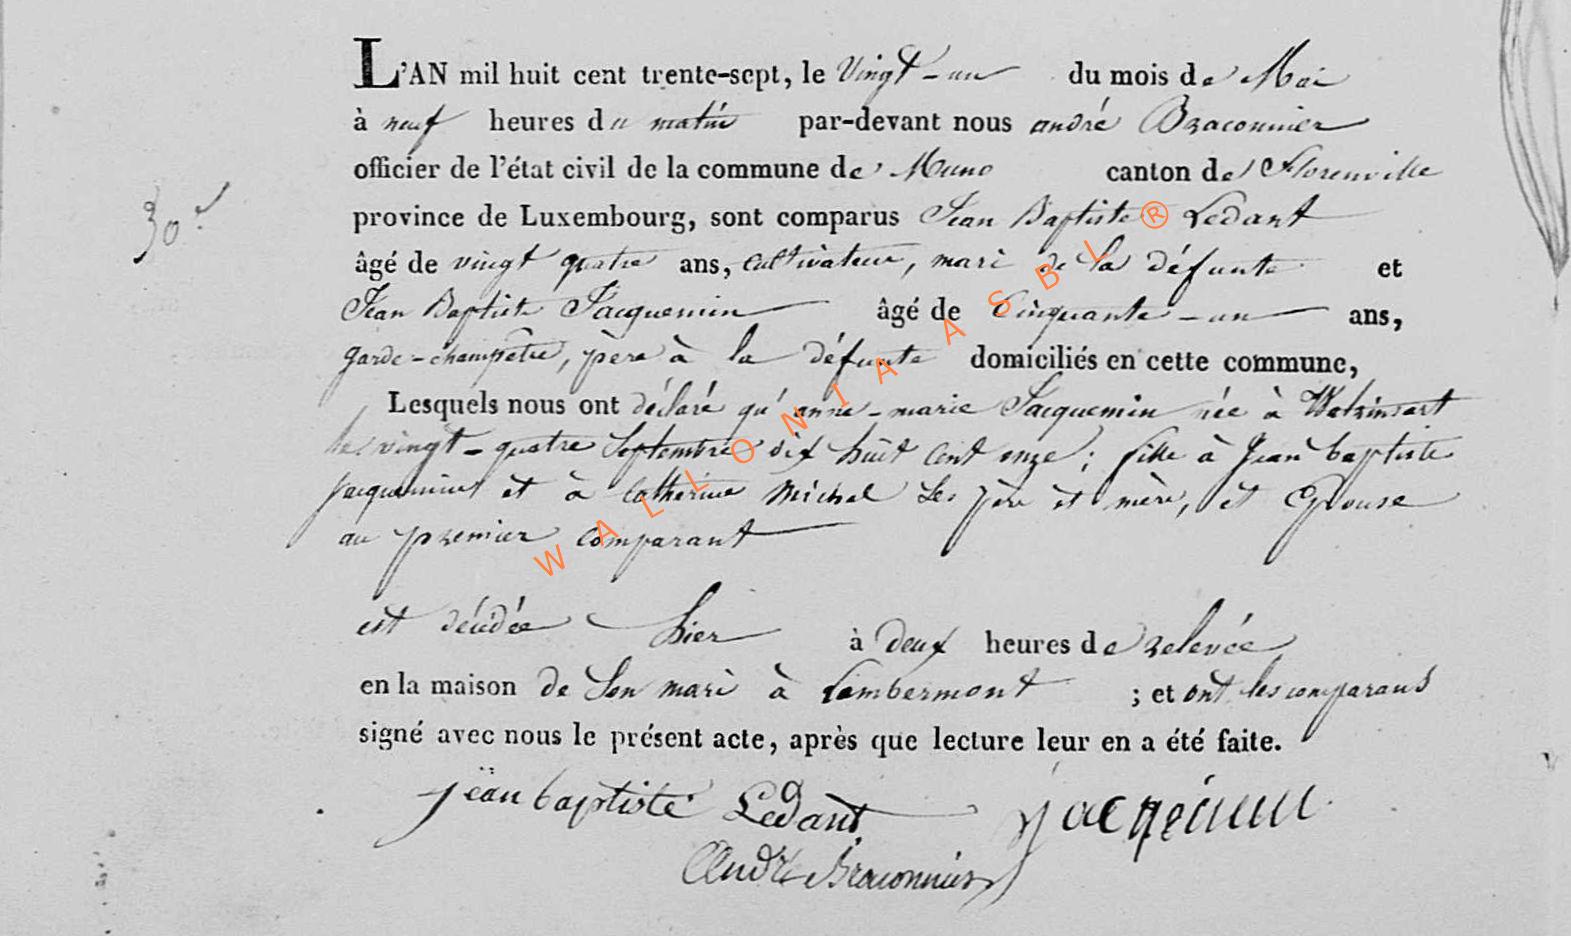 L'AN mil huit cent trente-sept, le Vingt-un du mois de Mai
à neuf heures du matin par-devant nous andré Braconnier
officier de l'état civil de la commune de Muno canton de Florenville
30e
province de Luxembourg, sont comparus Jean Baptiste Ledant
âgé de vingt quatre ans, cultivateur, mari de la défunte et
Jean Baptiste Jacquemin âgé de Cinquante-un ans,
garde-champêtre, père à la défunte domiciliés en cette commune,
Lesquels nous ont déclaré qu'anne-marie Jacquemin née à Watrinsart
le vingt-quatre Septembre dix huit cent onze; fille à Jean baptiste
jacquemin et à Catherine Michel Ses père et mère, et Epouse
au premier comparant
est décédée hier à deux heures de relevée
en la maison de Son mari à Lambermont ; et ont les comparans
signé avec nous le présent acte, après que lecture leur en a été faite.
jean baptiste Ledant jacquemin
André Braconnier
WALLONIA ASBL ®